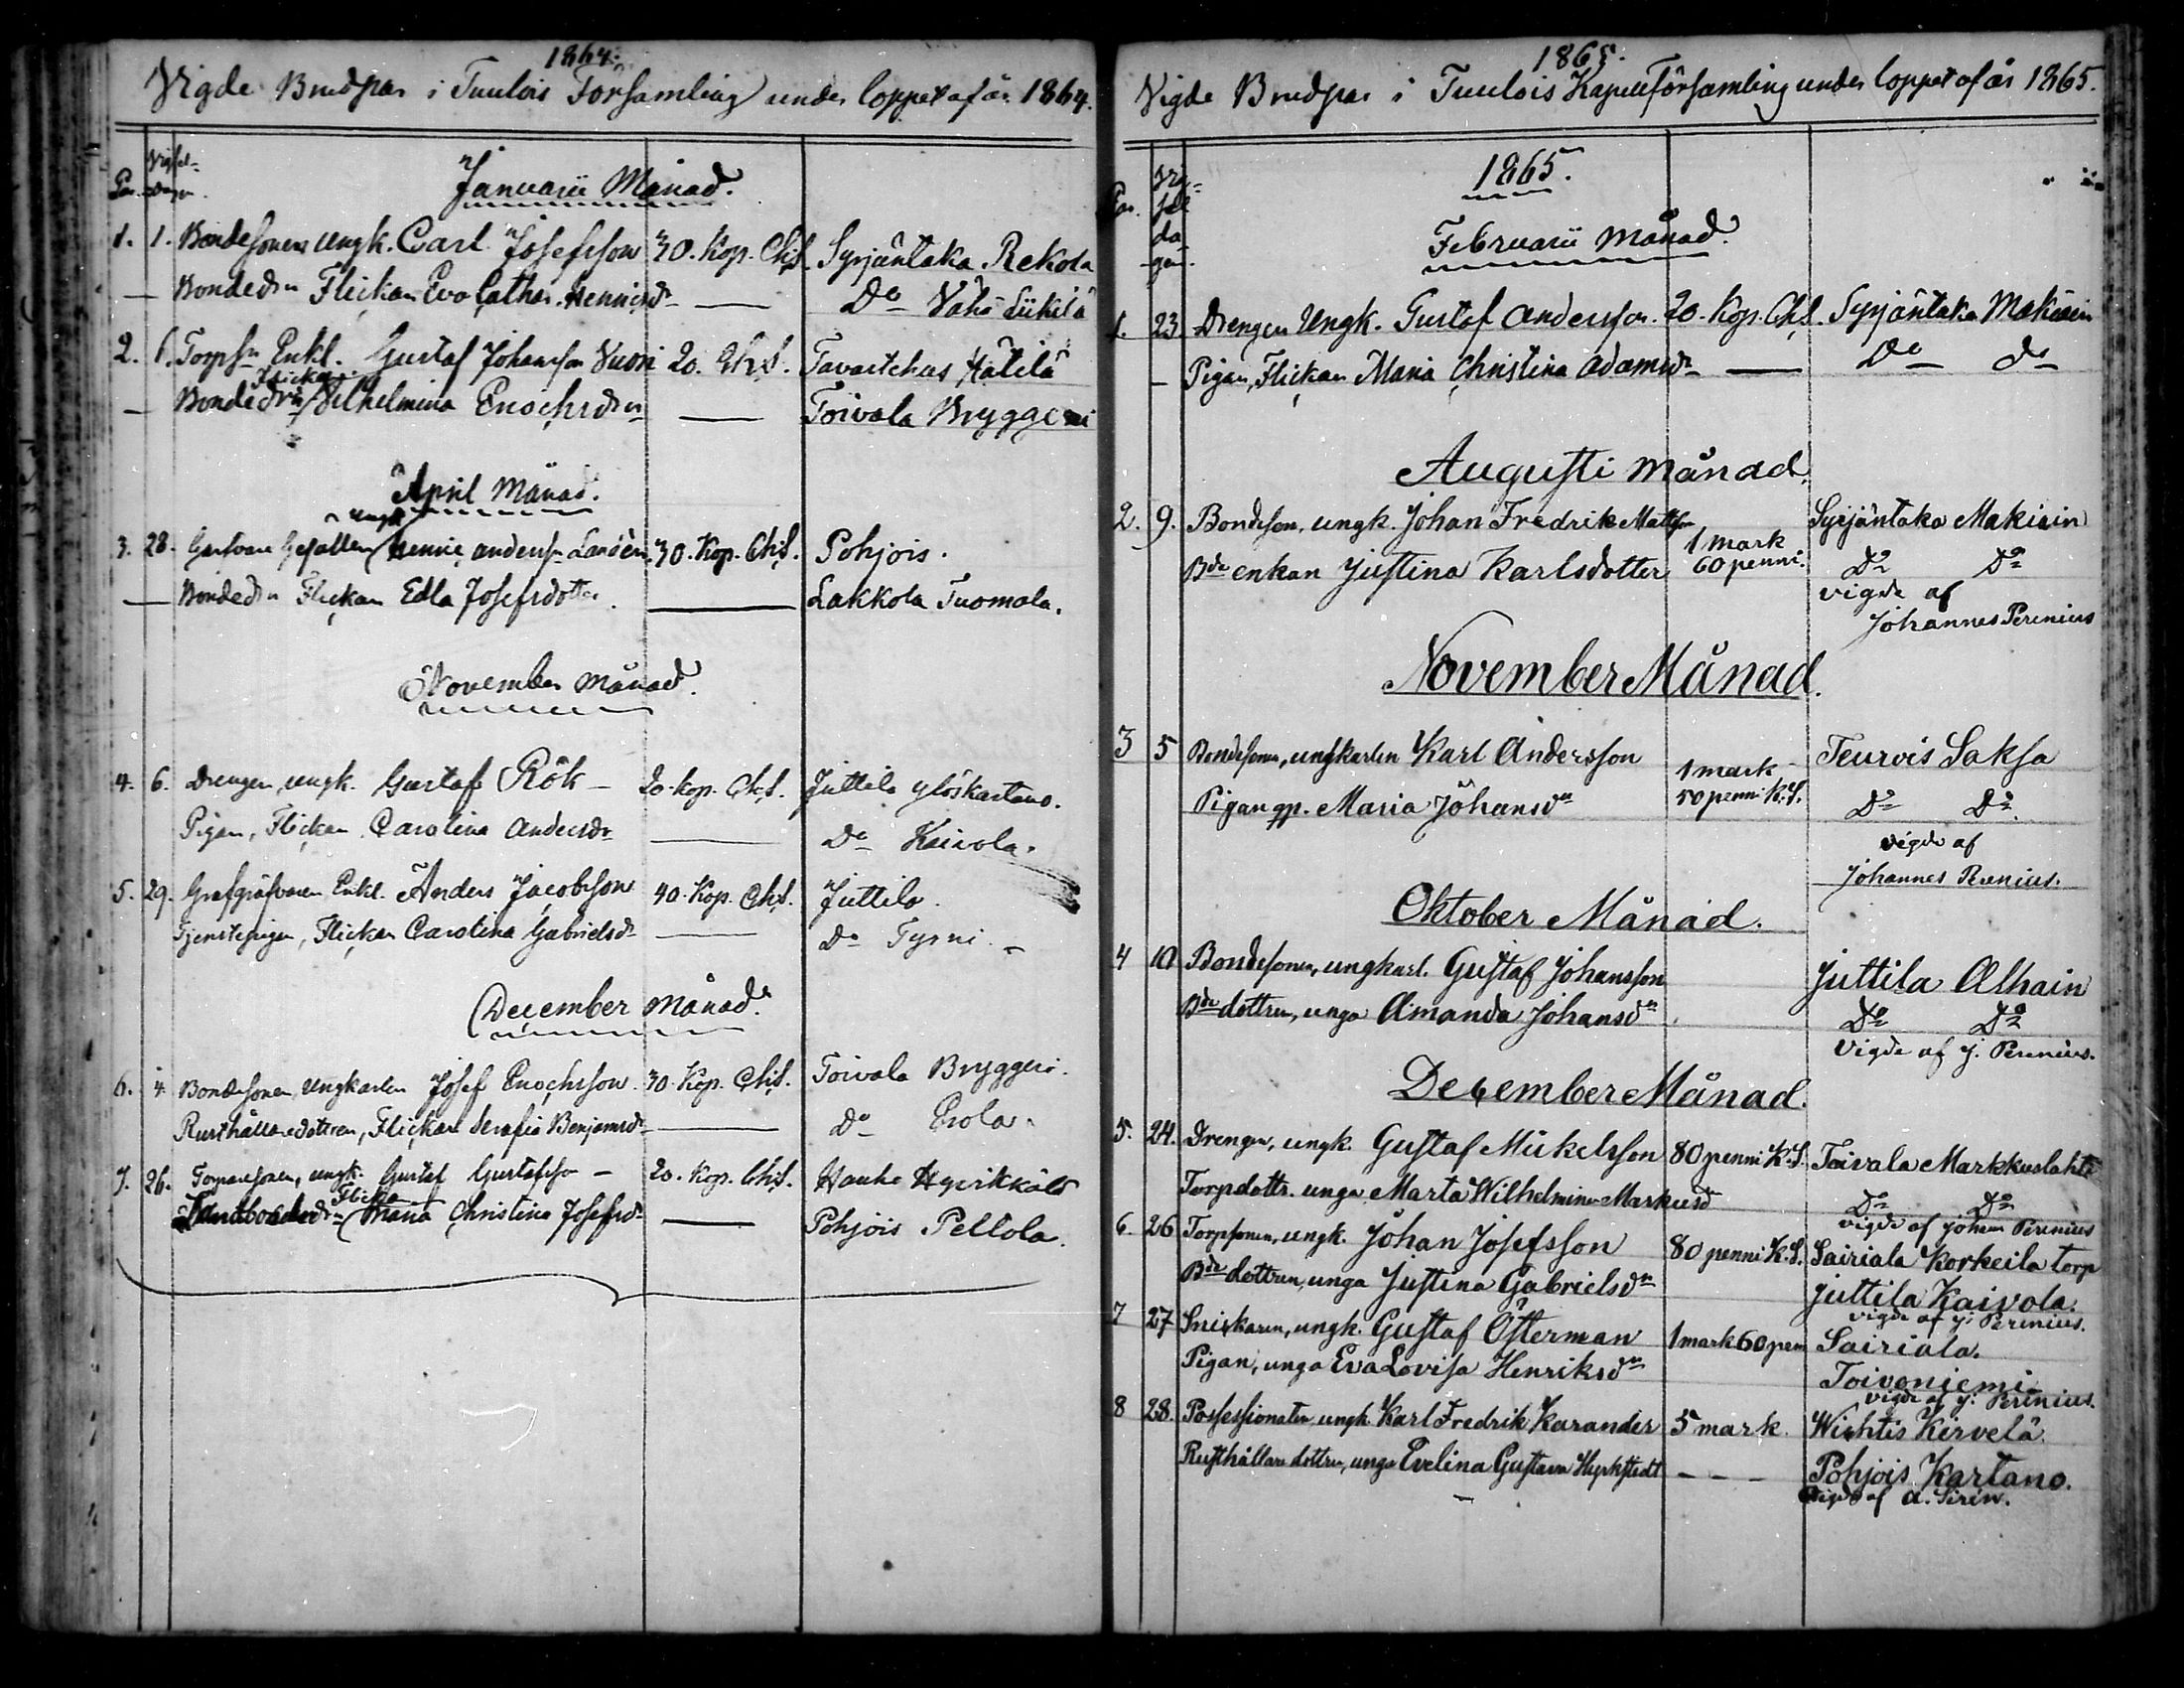 1864.
Vigde Brudpar i Tuulois Församling under loppet af år 1864.
Par. Vigsel-
Dagen.
Januarii Månad.
1. 1. Bondesonen Ungk. Carl Josefsson 30. Kop. Chs. Syrjäntaka Rekola
— Bondedrn Flickan Eva Cathar. Henricsdr — Do Vähä Liikilä
2. 6. Torpsn Enkl. Gustaf Johansson Vuori 20. Chs. Tavastehus Hätilä
Flickan
— Bondedrn Vilhelmina Enochsdr — Toivala Bryggeri
April Månad.
Ungk.
3. 28. Garfvare Gesällen Henric Andersn Landén 30. Kop. Chs. Pohjois.
— Bondedrn Flickan Edla Josefsdotter. — Lakkola Tuomola.
November Månad.
4. 6. Drengen, ungk. Gustaf Rök — 20. Kop. Chs. Juttila Ylöskartano.
Pigan, Flickan Carolina Andersdr — Do Kaivola.
5. 29. Grafgräfvaren Enkl. Anders Jacobsson 40. Kop. Chs. Juttila.
Tjenstepigan, Flickan Carolina Gabrielsdr — Do Tyrni. —
December Månad.
6. 4. Bondesonen, Ungkarlen Josef Enochsson. 30. Kop. Chs. Toivola Bryggeri.
Rusthållaredottren, Flickan Serafia Benjamsdr — Do Erola.
7. 26. Torparesonen, ungk. Gustaf Gustafsso — 20. Kop. Chs. Hauho Hyvikkälä
Flickan
Landbondedr Maria Christina Josefsdr — Pohjois Pellola.
1865.
Vigde Brudpar i Tuulois Kapellförsamling under loppet af år 1865.
Par. Vig-
sel
da
gen.
1865.
Februarii Månad.
1. 23 Drengen Ungk. Gustaf Andersson. 20. Kop. Chs. Syrjäntaka Mäkiäin
— Pigan, Flickan Maria Christina Adamsdr — Do do
Augusti månad.
2. 9. Bondeson. ungk. Johan Fredrik Mattsson Syrjäntaka Makiain
1 mark
60 penni.
Bde enkan Justina Karlsdotter Do Do
vigde af
Johannes Perenius
November Månad.
3 5 Bondesonen, ungkarlen Karl Andersson Teurois Saksa
1 mark
50 penni K.S.
Pigan qp. Maria Johansdr Do Do
vigde af
Johannes Perenius.
Oktober Månad.
4 10 Bondesonen, ungkarl. Gustaf Johansson Juttila Alhain
Bde dottren, unga Amanda Johansdr. Do Do
Vigde af J. Perenius.
December Månad.
5. 24. Drengen, ungk. Gustaf Mickelsson 80 penni K.S. Toivala Markkuslahti
Torpdottr. unga Marta Wilhelmina Markusd Do Do
vigde af Johan Perenius
6. 26 Torpsonen, ungk. Johan Josefsson 80 penni K.S. Sairiala Korkeila torp
Bde dottren, unga Justina Gabrielsdr Juttila Kaivola.
vigde af J. Perenius.
7 27 Snickaren, ungk. Gustaf Österman 1 mark 60 pen Sairiala.
Pigan, unga Eva Lovisa Henriksdr Toivoniemi
vigde af J. Perenius.
8 28. Possessionaten, ungk. Karl Fredrik Karander 5 mark. Wichtis Kirvelä.
Rusthållare dottren, unga Evelina Gustava Hyrkstedt — — — Pohjois Kartano.
vigde af A. Sirén.